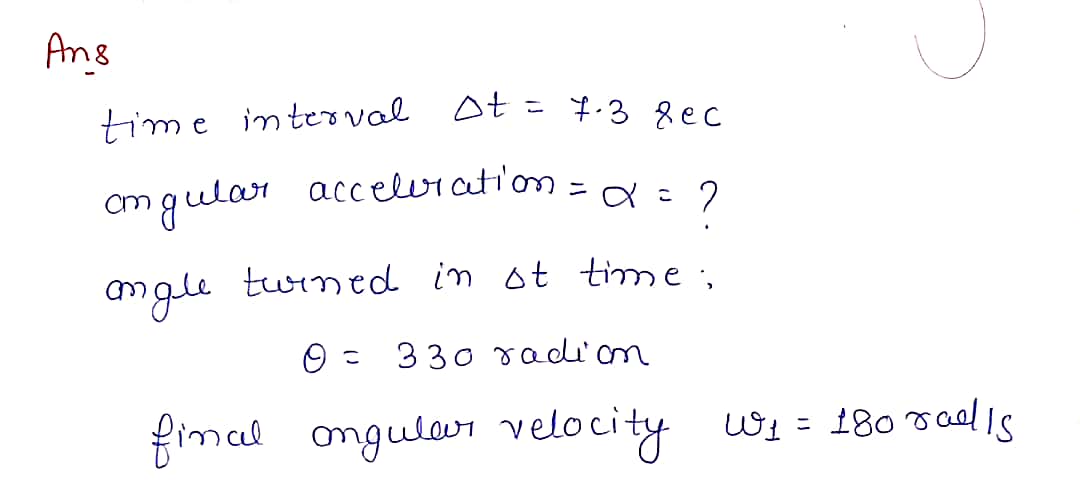 Ans
time interval Δt = 7.3 sec
angular acceleration = α = ?
angle turned in Δt time ;
θ = 330 radian
final angular velocity ω1 = 180 rad/s